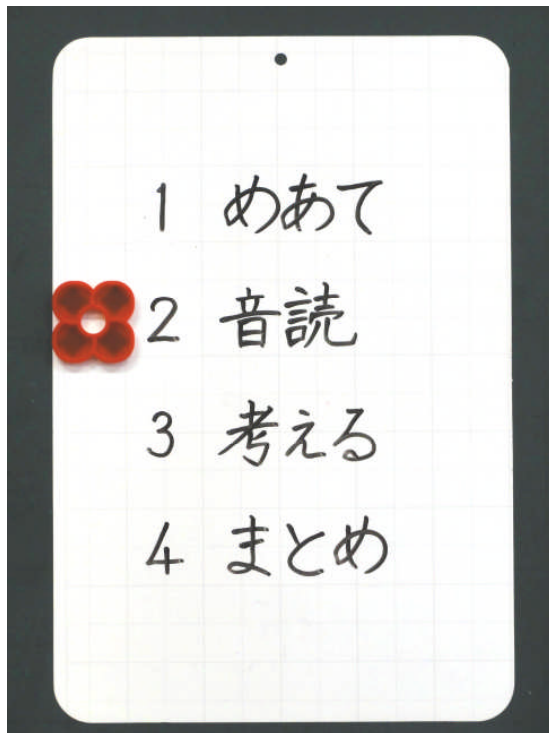 1 めあて
2 音読
3 考える
4 まとめ